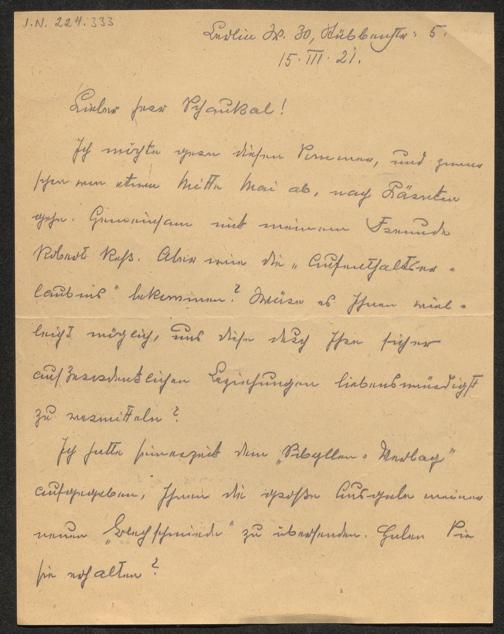 I.N. 224.333
Berlin W. 30, Stübbenstr: 5.
15. III. 21.
Lieber Herr Schaukal!
Ich möchte gern diesen Sommer, und zwar
schon von etwa Mitte Mai ab, nach Kärnten
gehn. Gemeinsam mit meinem Freunde
Robert Reß. Aber wie die „Aufenthaltser-
laubnis" bekommen? Wäre es Ihnen viel-
leicht möglich, uns diese durch Ihre sicher
außerordentlichen Beziehungen liebenswürdigst
zu vermitteln?
Ich hatte seinerzeit dem „Sibyllen-Verlag"
aufgegeben, Ihnen die große Ausgabe meiner
neuen „Blechschmiede" zu übersenden. Haben Sie
sie erhalten?